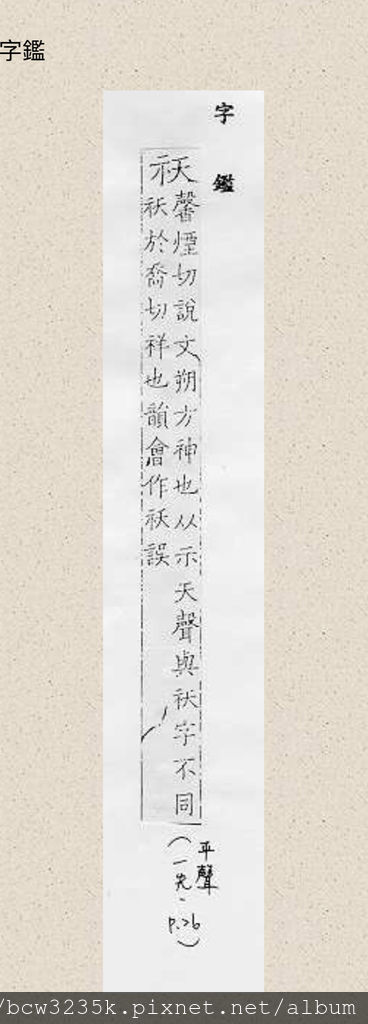 字鑑
字鑑
祆馨煙切說文朔方神也从示天聲與祅字不同
祅於喬切祥也韻會作祆誤
平聲
(一先、P.26)
/bcw3235k.pixnet.net/album